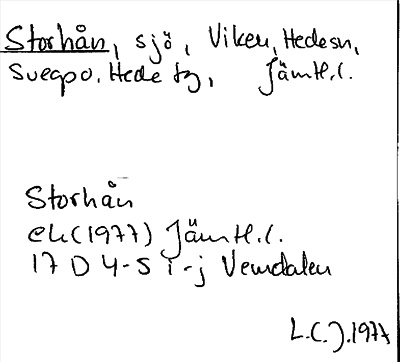 Storhån, sjö, Viken, Hedesn,
Svegpo, Hede tg, Jämtl.l.
Storhån
ek(1977) Jämtl.l.
17 D 4-5 i-j Vemdalen
L.C.J.1977